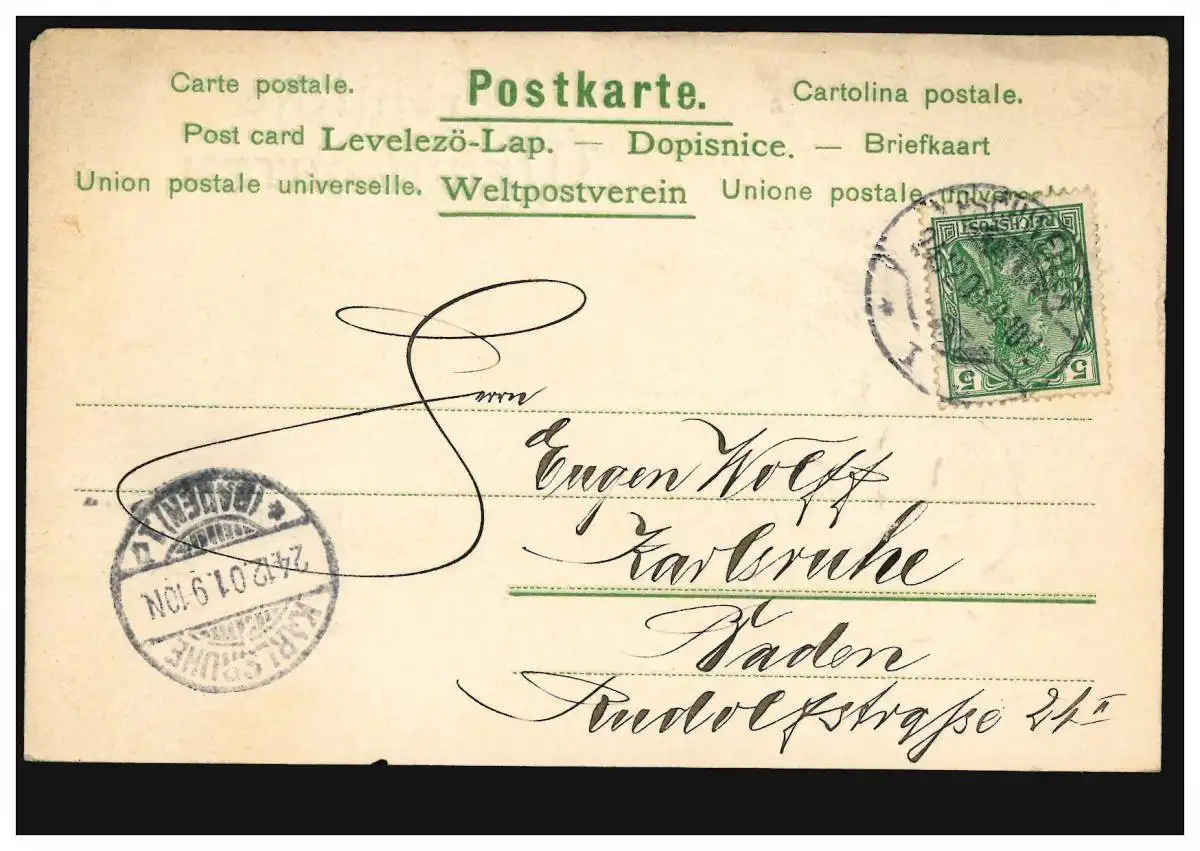 Carte postale. Postkarte. Cartolina postale.
Post card Levelezö-Lap. — Dopisnice. — Briefkaart
Union postale universelle. Weltpostverein Unione postale
REICHSPOST
5 5
Herrn
Eugen Wolff
Karlsruhe
Baden
Rudolfstraße 24 II
KARLSRUHE
24.12.01.9-10N
* (BADEN)